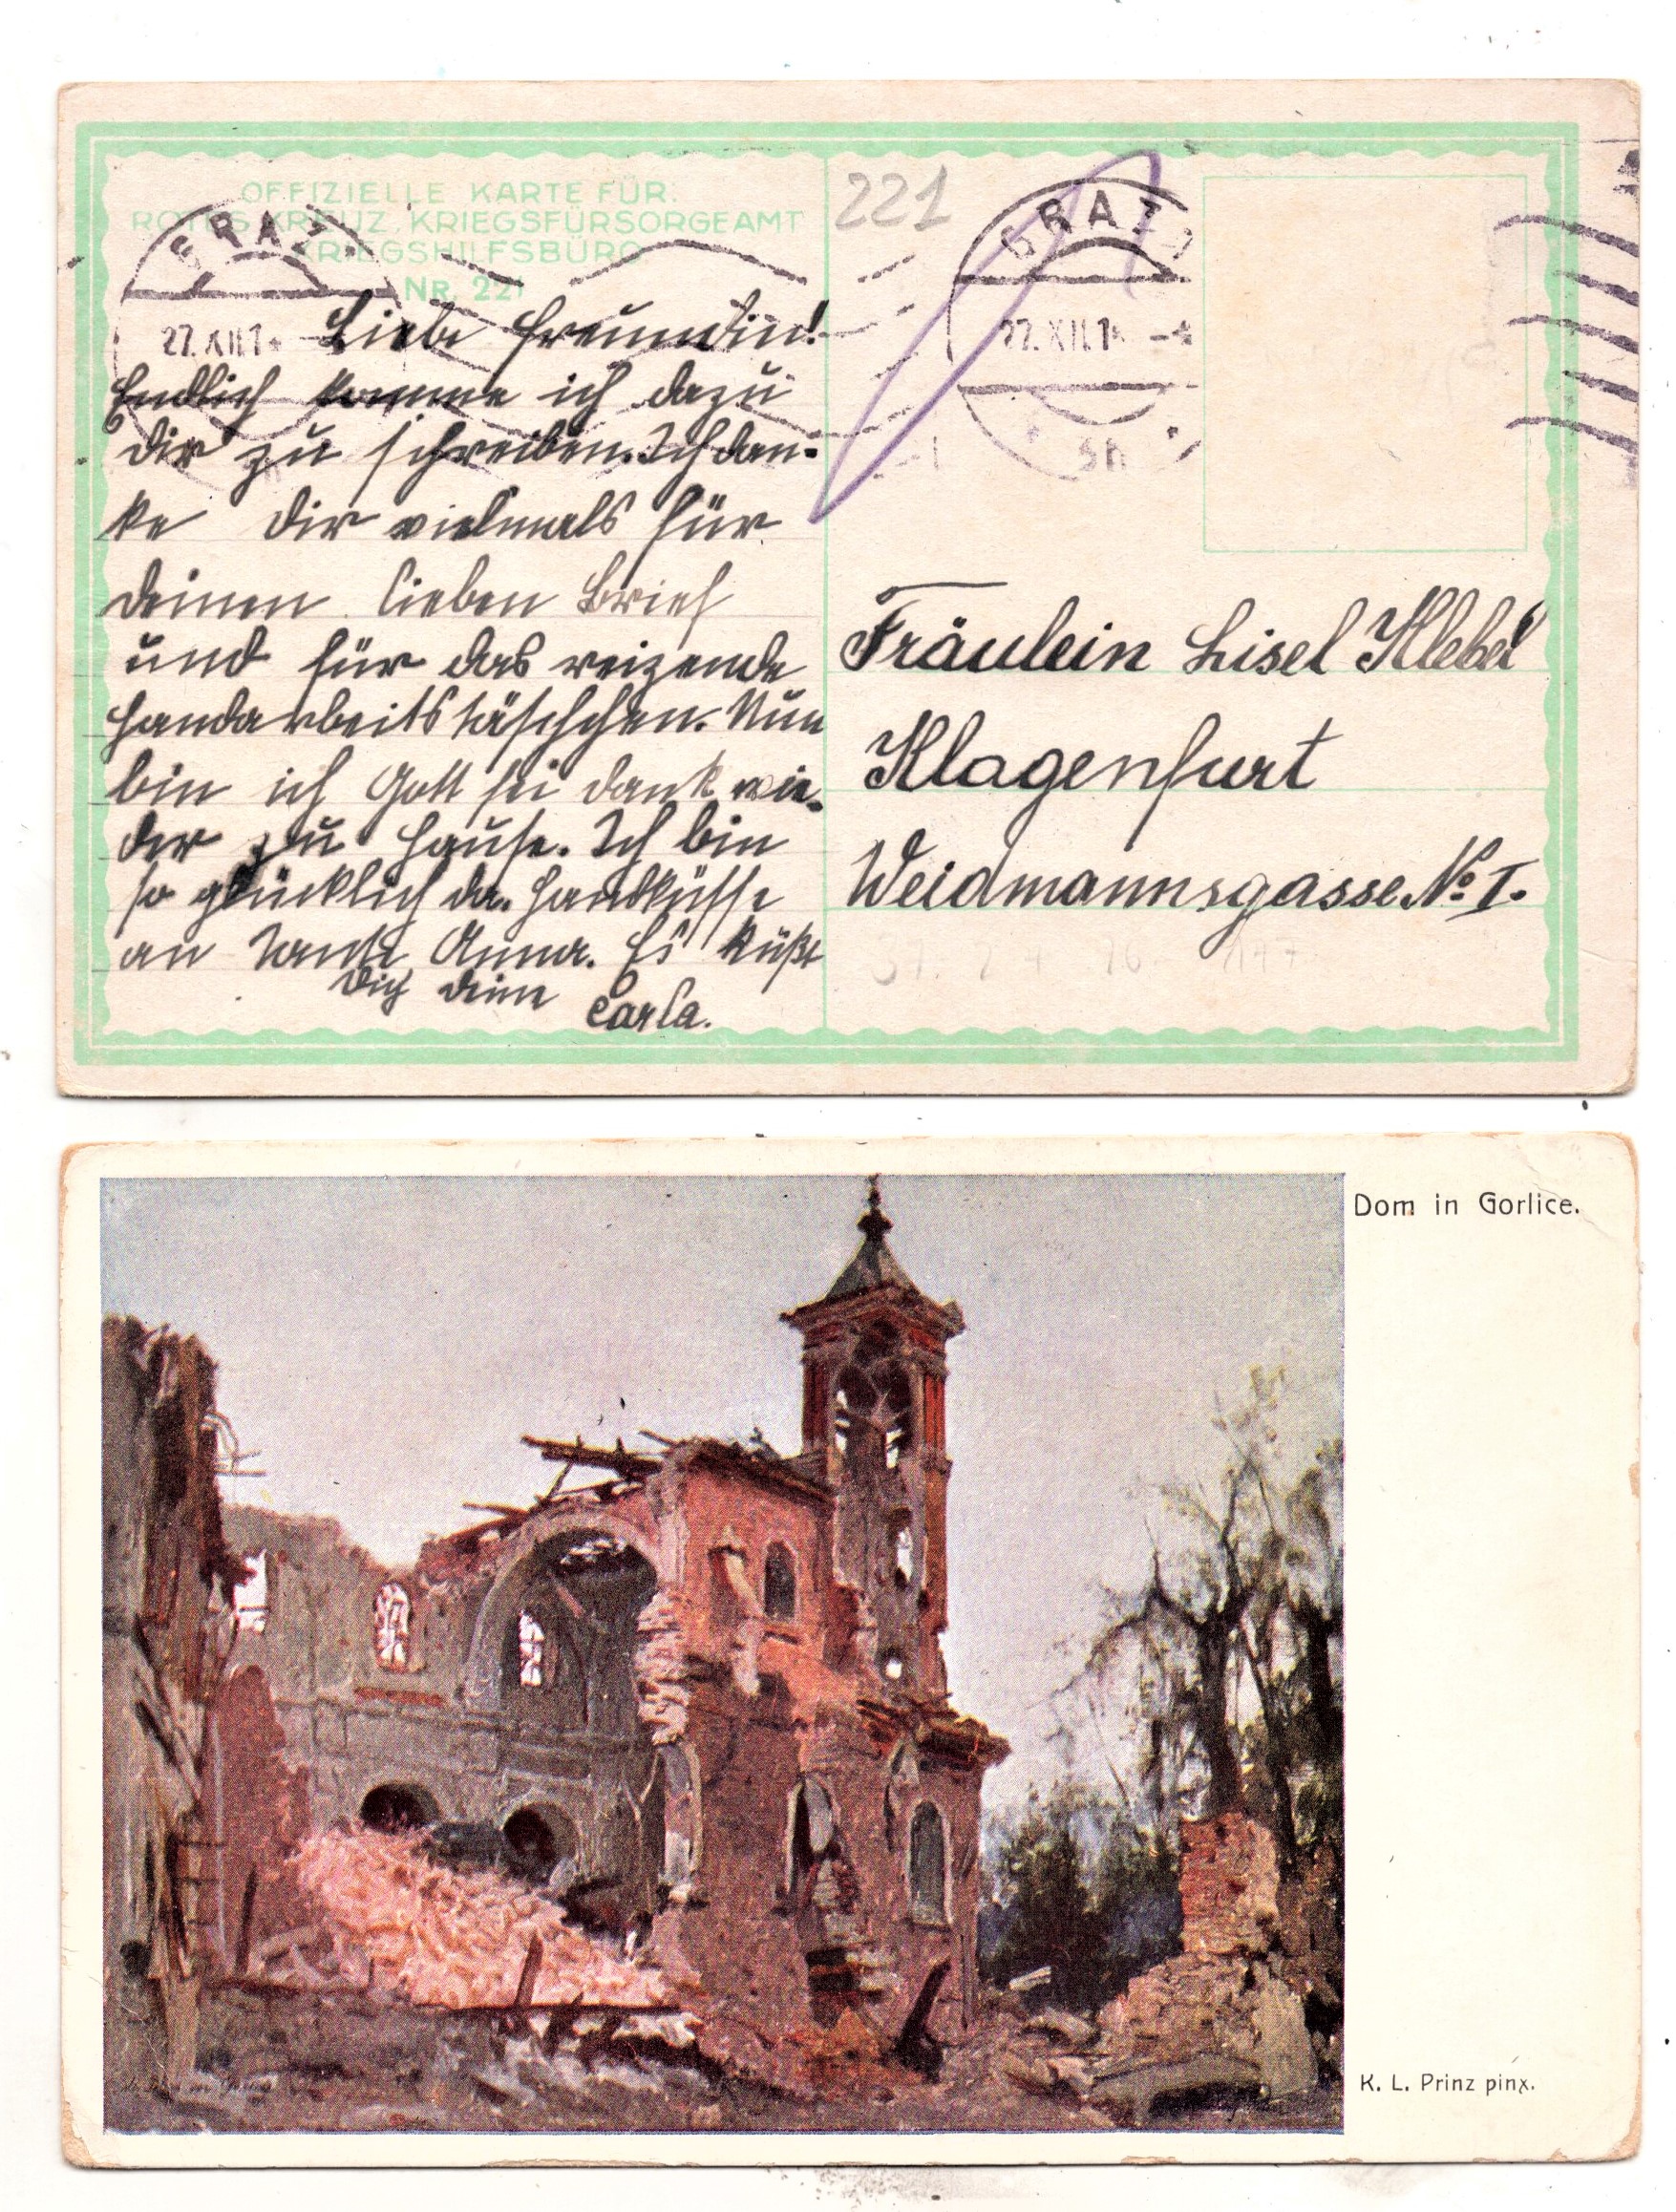 OFFIZIELLE KARTE FÜR:
ROTES KREUZ, KRIEGSFÜRSORGEAMT
KRIEGSHILFSBÜRO
Nr. 221
GRAZ
27.XII.1
Liebe Freundin!
Endlich komme ich dazu
dir zu schreiben. Ich dan-
ke dir vielmals für
deinen lieben Brief
und für das reizende
Handarbeitstäschchen. Nun
bin ich Gott sei dank wie-
der zu Hause. Ich bin
so glücklich da. Handküsse
an Tante Anna. Es küßt
Dich deine
Carla.
221
GRAZ
27.XII.1
Fräulein Lisel Klebel
Klagenfurt
Weidmannsgasse No I.
Dom in Gorlice.
K. L. Prinz pinx.